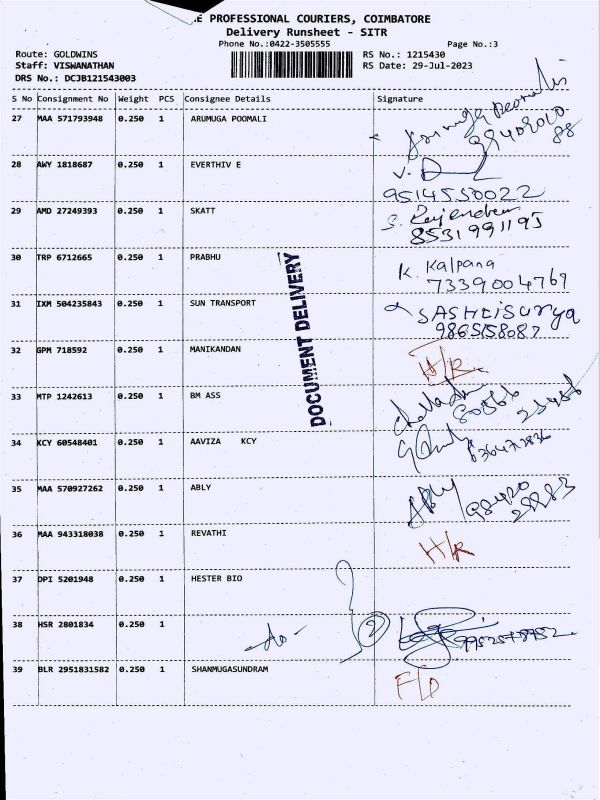 E PROFESSIONAL COURIERS, COIMBATORE
Delivery Runsheet - SITR
Phone No.:0422-3505555 Page No.:3
Route: GOLDWINS RS No.: 1215430
Staff: VISWANATHAN RS Date: 29-Jul-2023
DRS No.: DCJB121543003
S No Consignment No Weight PCS Consignee Details Signature
27 MAA 571793948 0.250 1 ARUMUGA POOMALI
88
28 AWY 1818687 0.250 1 EVERTHIV E
9514550022
29 AMD 27249393 0.250 1 SKATT S. Rajendran
8531991195
30 TRP 6712665 0.250 1 PRABHU K. Kalpana
7339004769
DOCUMENT DELIVERY
31 IXM 504235843 0.250 1 SUN TRANSPORT SASHTISURYA
9865158087
32 GPM 718592 0.250 1 MANIKANDAN H/R
33 MTP 1242613 0.250 1 BM ASS
34 KCY 60548401 0.250 1 AAVIZA KCY
35 MAA 570927262 0.250 1 ABLY ABLY
36 MAA 943318038 0.250 1 REVATHI H/R
37 DPI 5201948 0.250 1 HESTER BIO
38 HSR 2801834 0.250 1 -do- 2
39 BLR 2951831582 0.250 1 SHANMUGASUNDRAM F/D